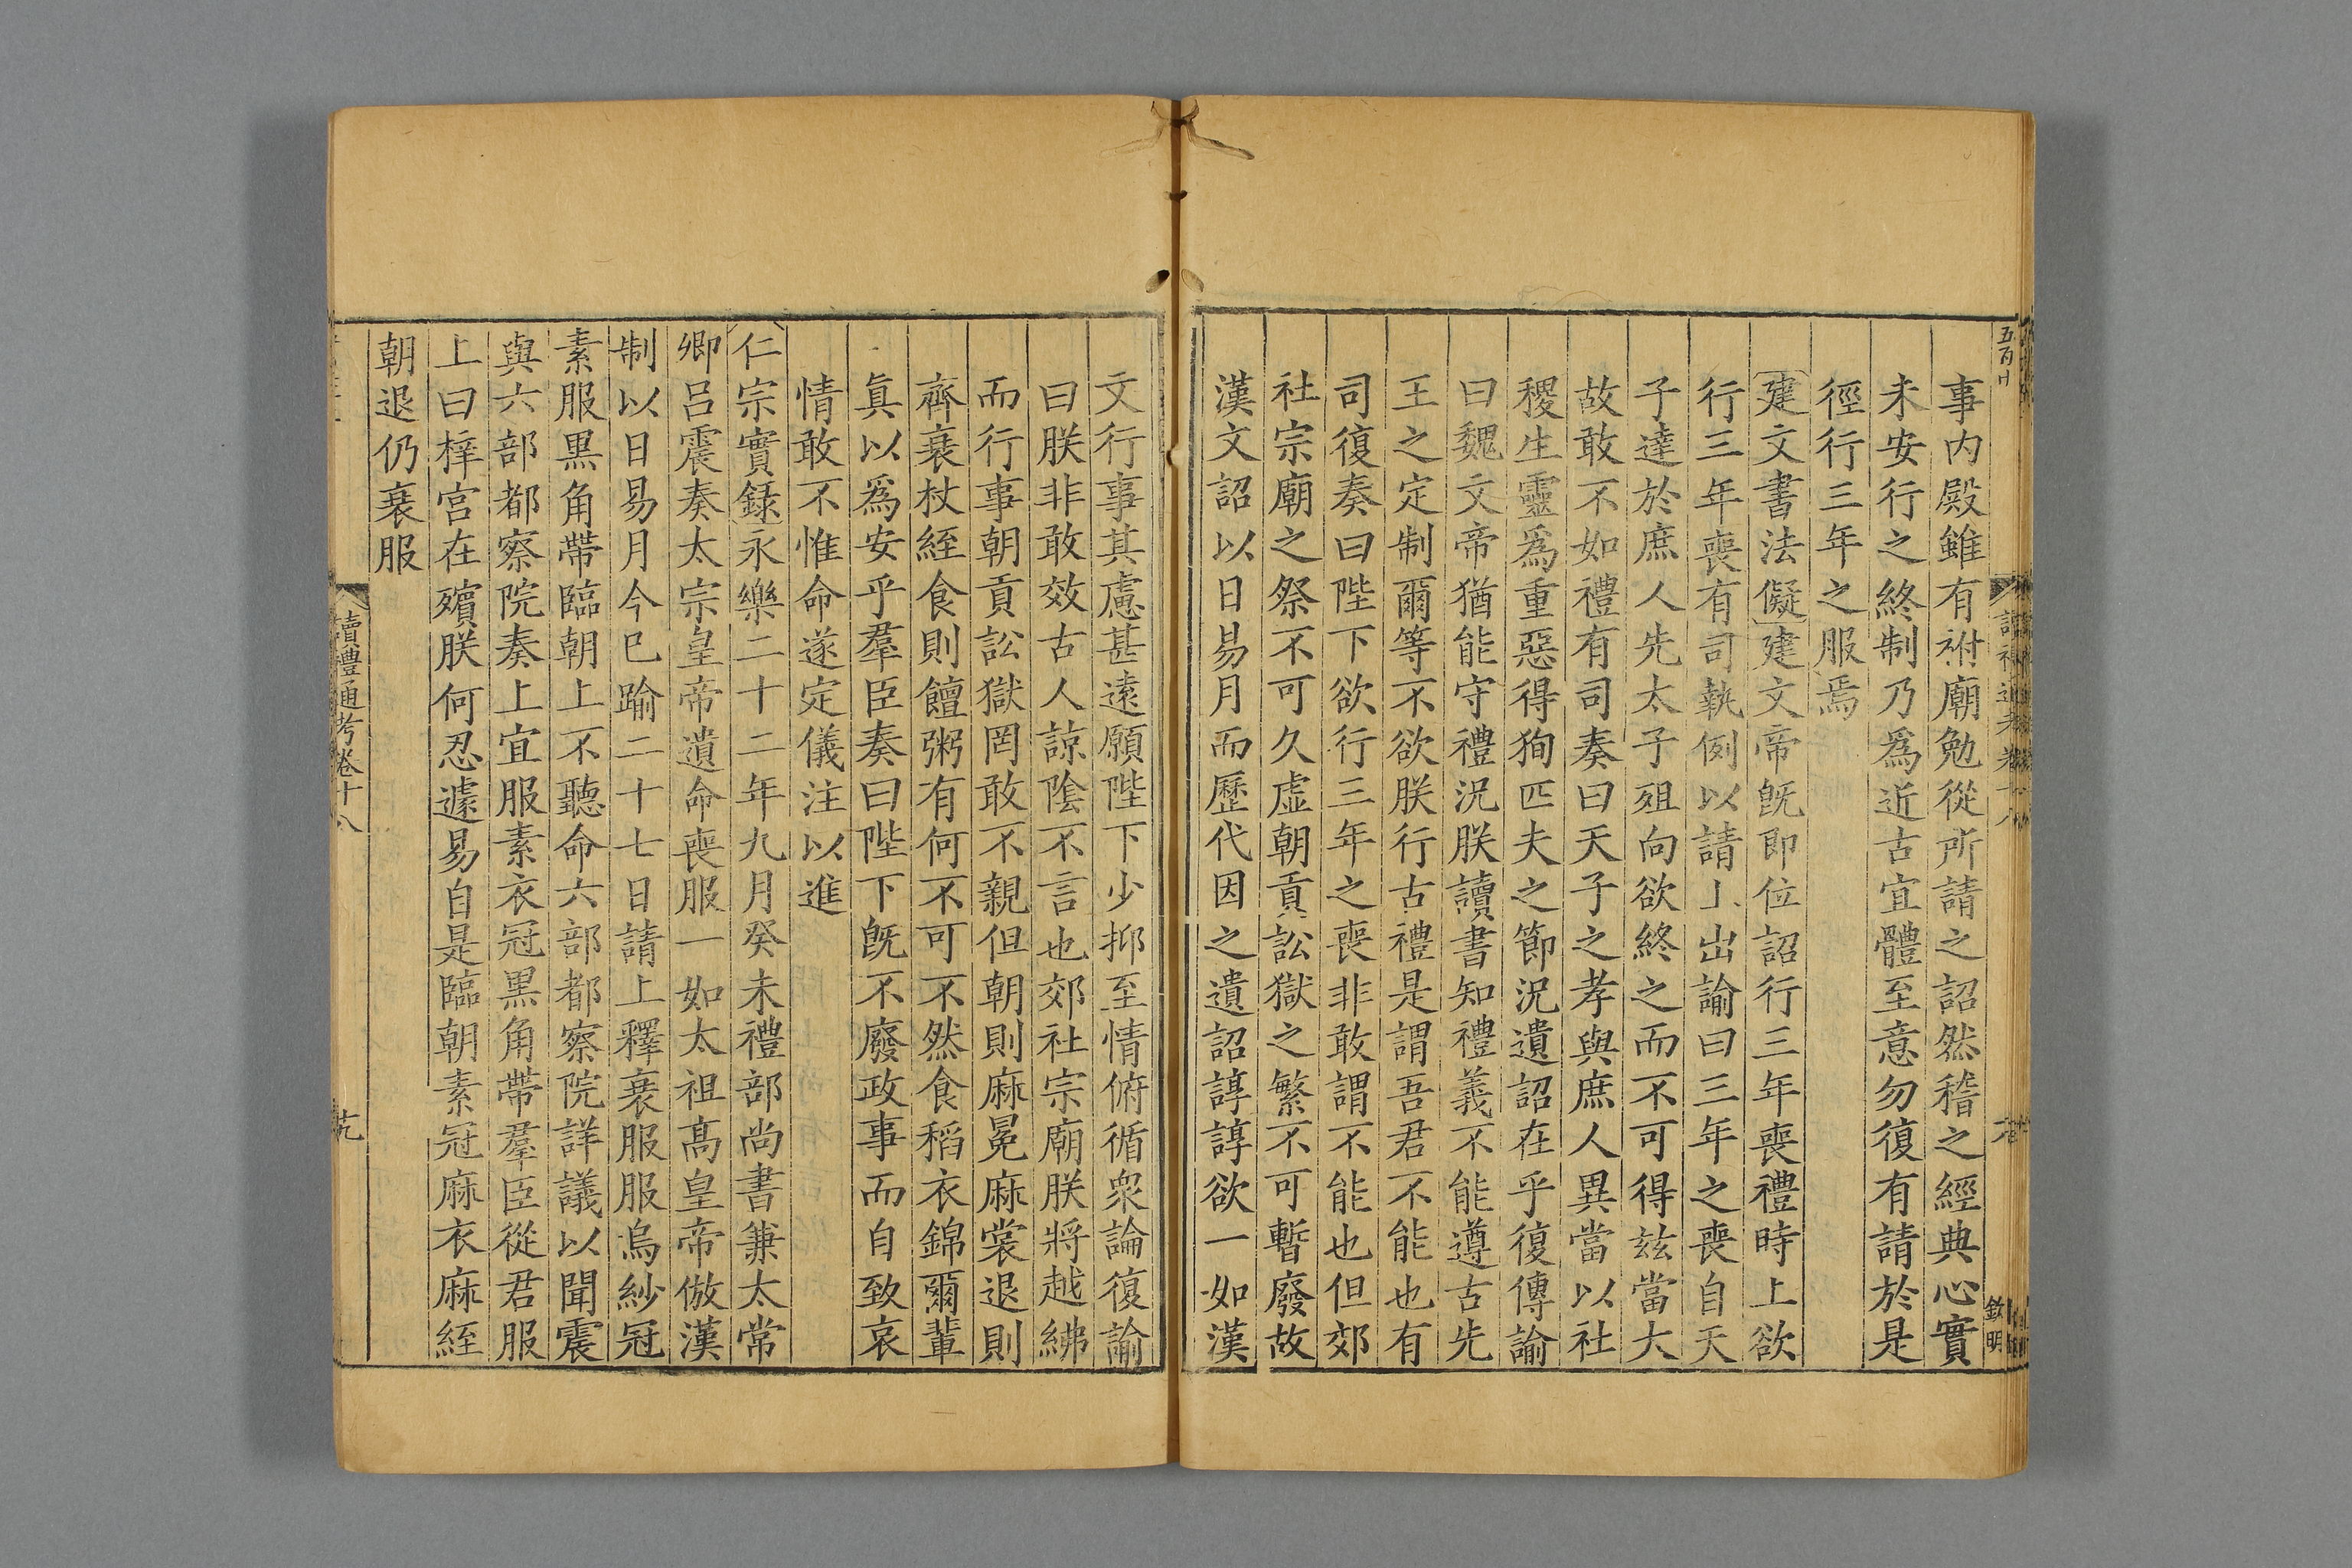 事内殿雖有祔廟勉從所請之詔然稽之經典心實
未安行之終制乃爲近古宜體至意勿復有請於是
徑行三年之服焉
建文書法儗建文帝旣即位詔行三年喪禮時上欲
行三年喪有司執例以請上出諭曰三年之喪自天
子達於庶人先太子殂向欲終之而不可得玆當大
故敢不如禮有司奏曰天子之孝與庶人異當以社
稷生靈爲重惡得狥匹夫之節況遺詔在乎復傳諭
曰魏文帝猶能守禮況朕讀書知禮義不能遵古先
王之定制爾等不欲朕行古禮是謂吾君不能也有
司復奏曰陛下欲行三年之喪非敢謂不能也但郊
社宗廟之祭不可久虛朝貢訟獄之繁不可暫廢故
漢文詔以日易月而歷代因之遺詔諄諄欲一如漢
文行事其慮甚遠願陛下少抑至情俯循衆論復諭
曰朕非敢效古人諒陰不言也郊社宗廟朕將越紼
而行事朝貢訟獄罔敢不親但朝則麻冕麻裳退則
齊衰杖絰食則饘粥有何不可不然食稻衣錦爾輩
眞以爲安乎羣臣奏曰陛下旣不廢政事而自致哀
情敢不惟命遂定儀注以進
仁宗實錄永樂二十二年九月癸未禮部尚書兼太常
卿呂震奏太宗皇帝遺命喪服一如太祖高皇帝倣漢
制以日易月今已踰二十七日請上釋衰服服烏紗冠
素服黑角帶臨朝上不聽命六部都察院詳議以聞震
與六部都察院奏上宜服素衣冠黑角帶羣臣從君服
上曰梓宮在殯朕何忍遽易自是臨朝素冠麻衣麻絰
朝退仍衰服
讀禮通考卷十八